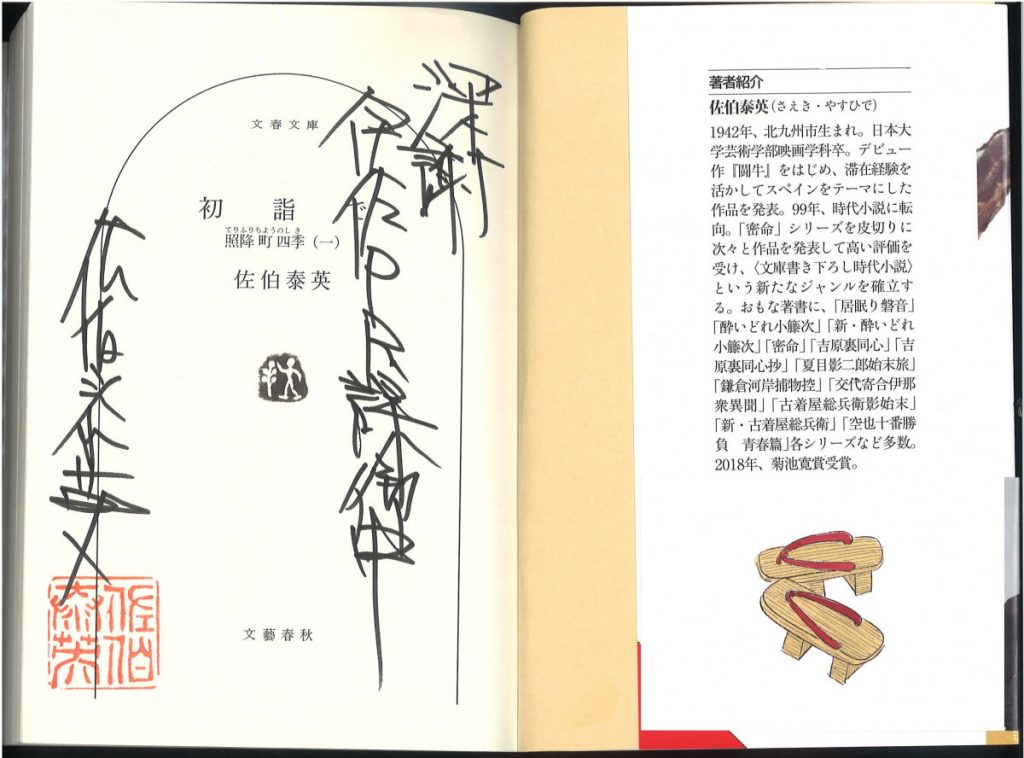 深謝
文春文庫
初詣で
てりふりちようのしき
照降町四季（一）
佐伯泰英
文藝春秋
佐伯泰英
佐伯
泰英
著者紹介
佐伯泰英（さえき・やすひで）
1942年、北九州市生まれ。日本大
学芸術学部映画学科卒。デビュー
作『闘牛』をはじめ、滞在経験を
活かしてスペインをテーマにした
作品を発表。99年、時代小説に転
向。「密命」シリーズを皮切りに
次々と作品を発表して高い評価を
受け、〈文庫書き下ろし時代小説〉
という新たなジャンルを確立す
る。おもな著書に、「居眠り磐音」
「酔いどれ小籐次」「新・酔いどれ
小籐次」「密命」「吉原裏同心」「吉
原裏同心抄」「夏目影二郎始末旅」
「鎌倉河岸捕物控」「交代寄合伊那
衆異聞」「古着屋総兵衛影始末」
「新・古着屋総兵衛」「空也十番勝
負　青春篇」各シリーズなど多数。
2018年、菊池寛賞受賞。